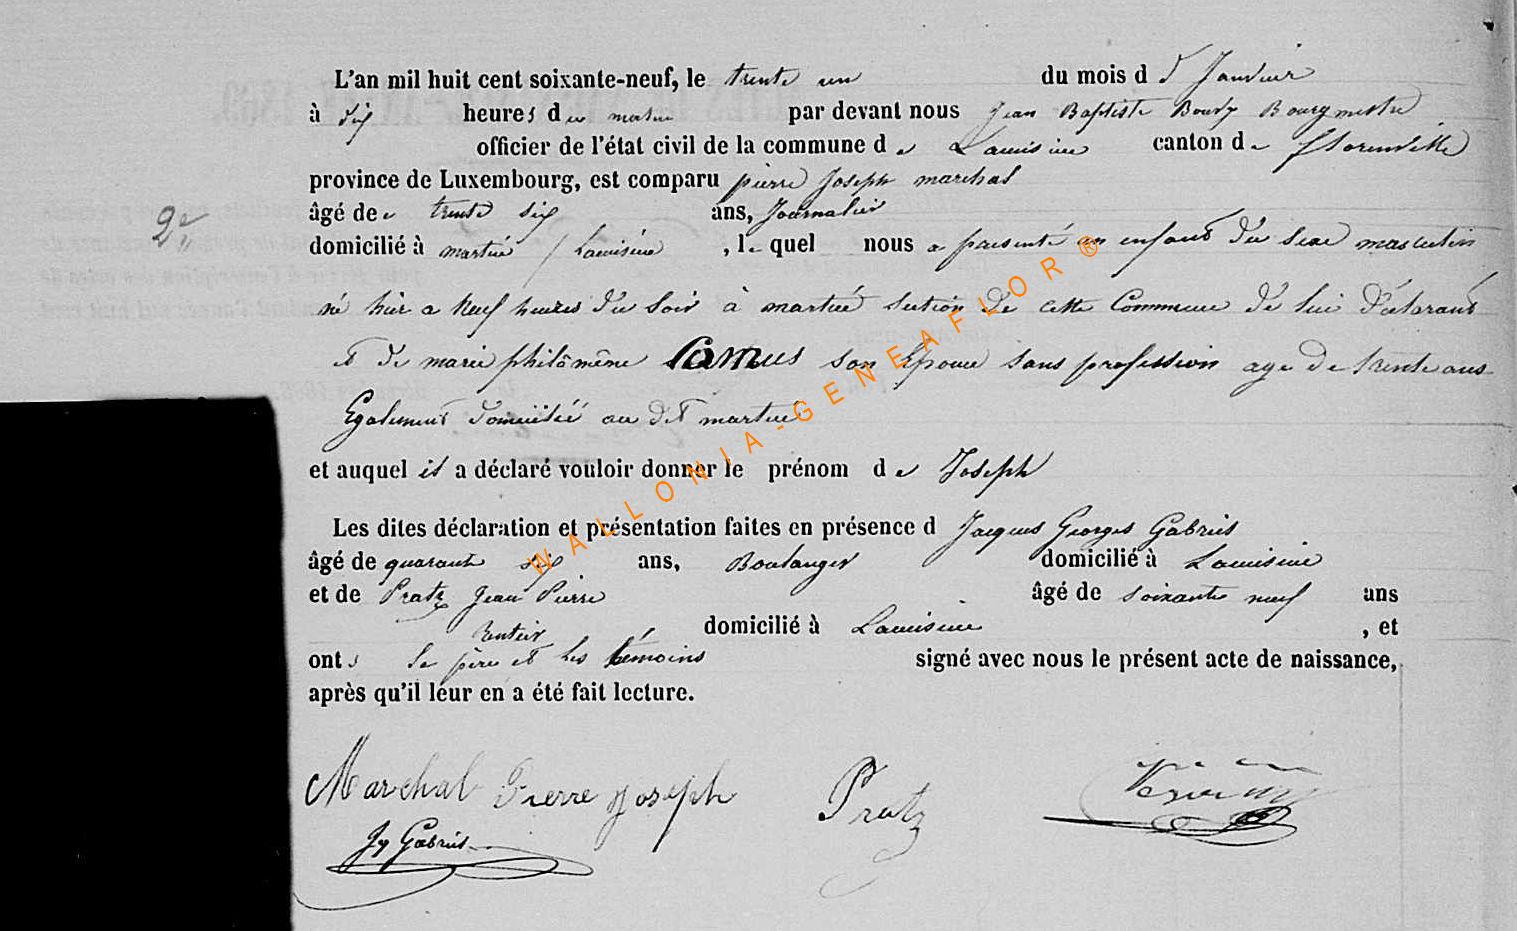 L'an mil huit cent soixante-neuf, le trente un du mois d Janvier
à dix heures du matin par devant nous Jean Baptiste Bourg Bourgmestre
officier de l'état civil de la commune de Lacuisine canton de Florenville
province de Luxembourg, est comparu pierre Joseph marchal
âgé de trente six ans, Journalier
2e
domicilié à martué / Lacuisine, le quel nous a presenté un enfant du sexe masculin
né hier a Neuf heures du Soir à martué section de cette Commune de lui déclarant
et de marie philomène Camus son Epouse sans profession age de trente ans
Egalement domicilié au dit martué
et auquel il a déclaré vouloir donner le prénom de Joseph
Les dites déclaration et présentation faites en présence d Jacques Georges Gabriel
âgé de quarante six ans, Boulanger domicilié à Lacuisine
et de Pratz Jean Pierre âgé de soixante neuf ans
rentier domicilié à Lacuisine, et
ont le père et les témoins signé avec nous le présent acte de naissance,
après qu'il leur en a été fait lecture.
Marchal Pierre Joseph Pratz
Jq Gabriel
WALLONIA-GENEAFLOR®